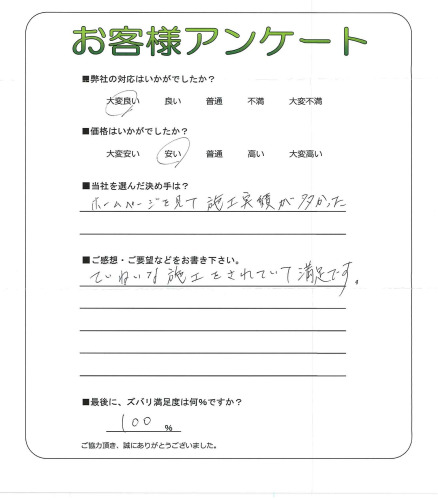 お客様アンケート
■弊社の対応はいかがでしたか？
大変良い 良い 普通 不満 大変不満
■価格はいかがでしたか？
大変安い 安い 普通 高い 大変高い
■当社を選んだ決め手は？
ホームページを見て施工実績が多かった
■ご感想・ご要望などをお書き下さい。
ていねいな施工をされていて満足です。
■最後に、ズバリ満足度は何％ですか？
100 ％
ご協力頂き、誠にありがとうございました。